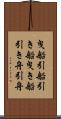 曳船引
船曳き船
引き舟引舟